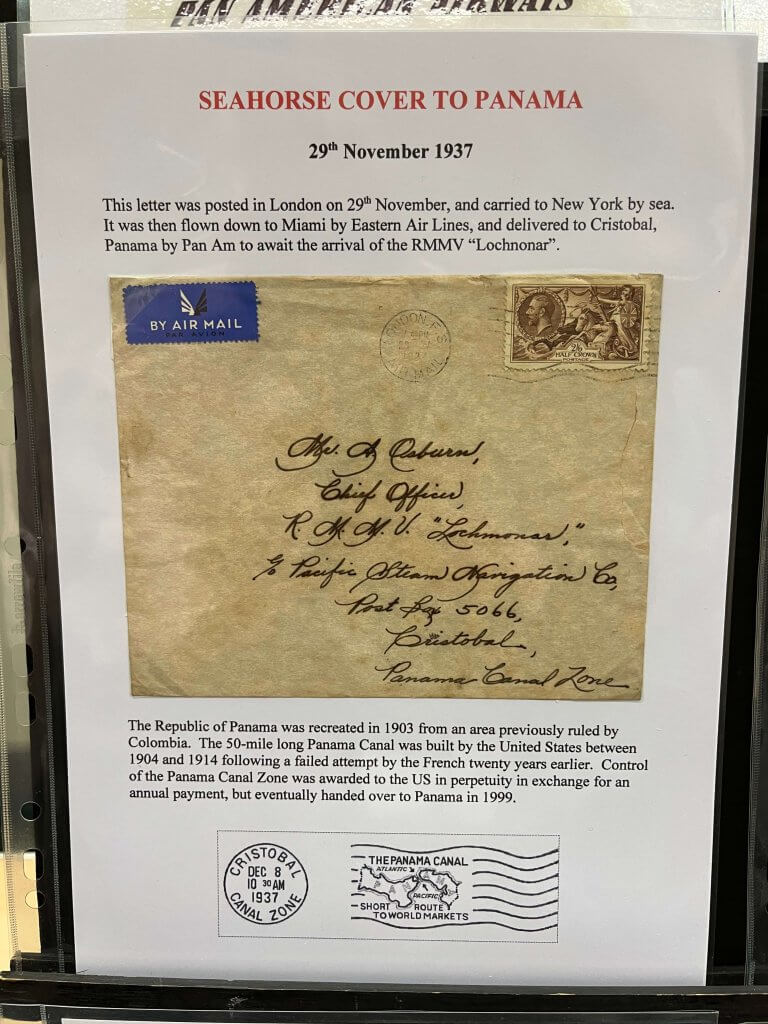 PAN AMERICAN AIRWAYS
SEAHORSE COVER TO PANAMA
29th November 1937
This letter was posted in London on 29th November, and carried to New York by sea.
It was then flown down to Miami by Eastern Air Lines, and delivered to Cristobal,
Panama by Pan Am to await the arrival of the RMMV “Lochnonar”.
BY AIR MAIL
PAR AVION
LONDON F.S
AIR MAIL
2/6
HALF CROWN
POSTAGE
Mr. A Osburn,
Chief Officer,
R. M. M. V. "Lochmonar,"
c/o Pacific Steam Navigation Co,
Post Box 5066,
Cristobal,
Panama Canal Zone
The Republic of Panama was recreated in 1903 from an area previously ruled by
Colombia. The 50-mile long Panama Canal was built by the United States between
1904 and 1914 following a failed attempt by the French twenty years earlier. Control
of the Panama Canal Zone was awarded to the US in perpetuity in exchange for an
annual payment, but eventually handed over to Panama in 1999.
CRISTOBAL
DEC 8
10 30 AM
1937
CANAL ZONE
THE PANAMA CANAL
ATLANTIC
PANAMA
PACIFIC
SHORT ROUTE
TO WORLD MARKETS